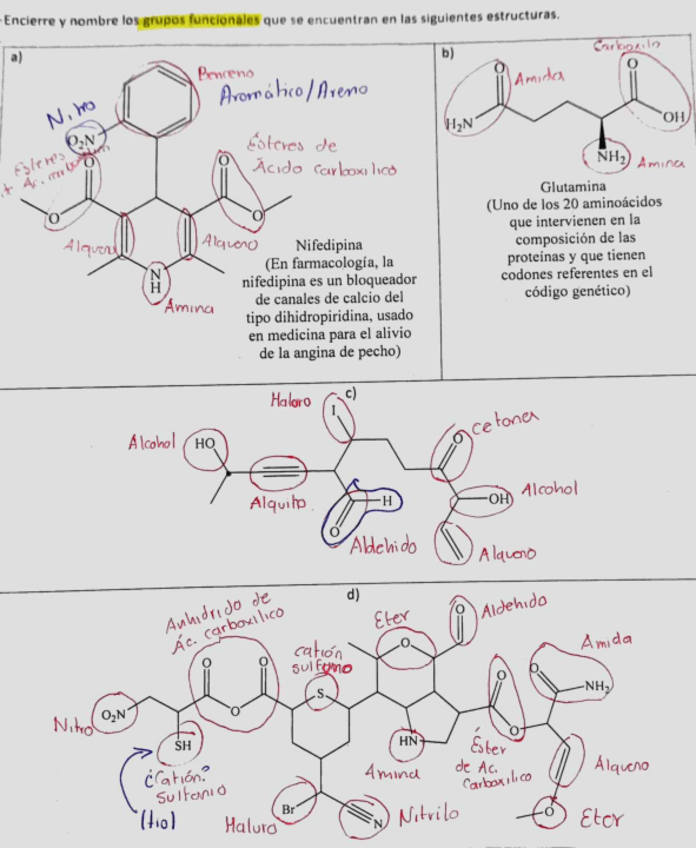 Encierre y nombre los grupos funcionales que se encuentran en las siguientes estructuras.
a)
Benceno
Aromático/Areno
Nitro
O₂N
Esteres
Ac.
O
O
O
O
Ésteres de
Ácido carboxilico
Alqueno
Alqueno
N
H
Amina
Nifedipina
(En farmacología, la
nifedipina es un bloqueador
de canales de calcio del
tipo dihidropiridina, usado
en medicina para el alivio
de la angina de pecho)
b)
Carboxilo
O
Amida
O
H₂N
OH
NH₂
Amina
Glutamina
(Uno de los 20 aminoácidos
que intervienen en la
composición de las
proteínas y que tienen
codones referentes en el
código genético)
c)
Haluro
I
Alcohol
HO
Alquito
O
H
Aldehido
O
cetona
OH
Alcohol
Alqueno
d)
Anhidrido de
Ác. carboxilico
O
O
O
O₂N
Nitro
SH
¿Catión?
Sulfonio
(tio)
catión
sulfonio
S
Eter
O
O
Aldehido
HN
Amina
Br
Haluro
N
Nitrilo
O
O
Éster
de Ac.
Carboxilico
Amida
O
NH₂
Alqueno
O
Eter